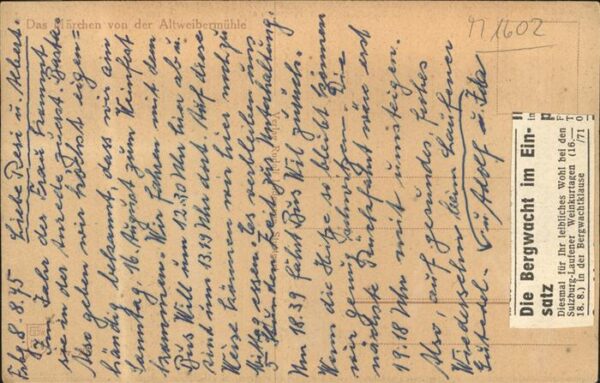 Das Märchen von der Altweibermühle
M 1602
8.8.75 Liebe Resi u.
Im Jahr der Frau kommt
sie in der Anrede zuerst.
Also geben wir höchst eigen=
händig bekannt, dass wir am
Samstag, 16. August zum Weinfest
kommen. Wir fahren mit dem
Bus Will um 12.30 Uhr hier ab u.
sind um 13.19 Uhr dort. Auf diese
Weise können wir hier noch zu
Mittag essen. Es verbleiben uns
5 Stunden Zeit zur Unterhaltung.
Um 18.39 fährt Bus Will zurück.
Wenn die Hitze so bleibt können
wir genug schwitzen. Die
nächste Rückfahrt wäre erst
19.18 Uhr mit umsteigen.
Also, auf gesundes, frohes
Wiedersehn beim Laufener
Gutedel. Adolf u. Ida
Die Bergwacht im Ein-
satz
Diesmal für Ihr leibliches Wohl bei den
Sulzburg-Laufener Weinkurtagen (16./
18. 8.) in der Bergwachtklause